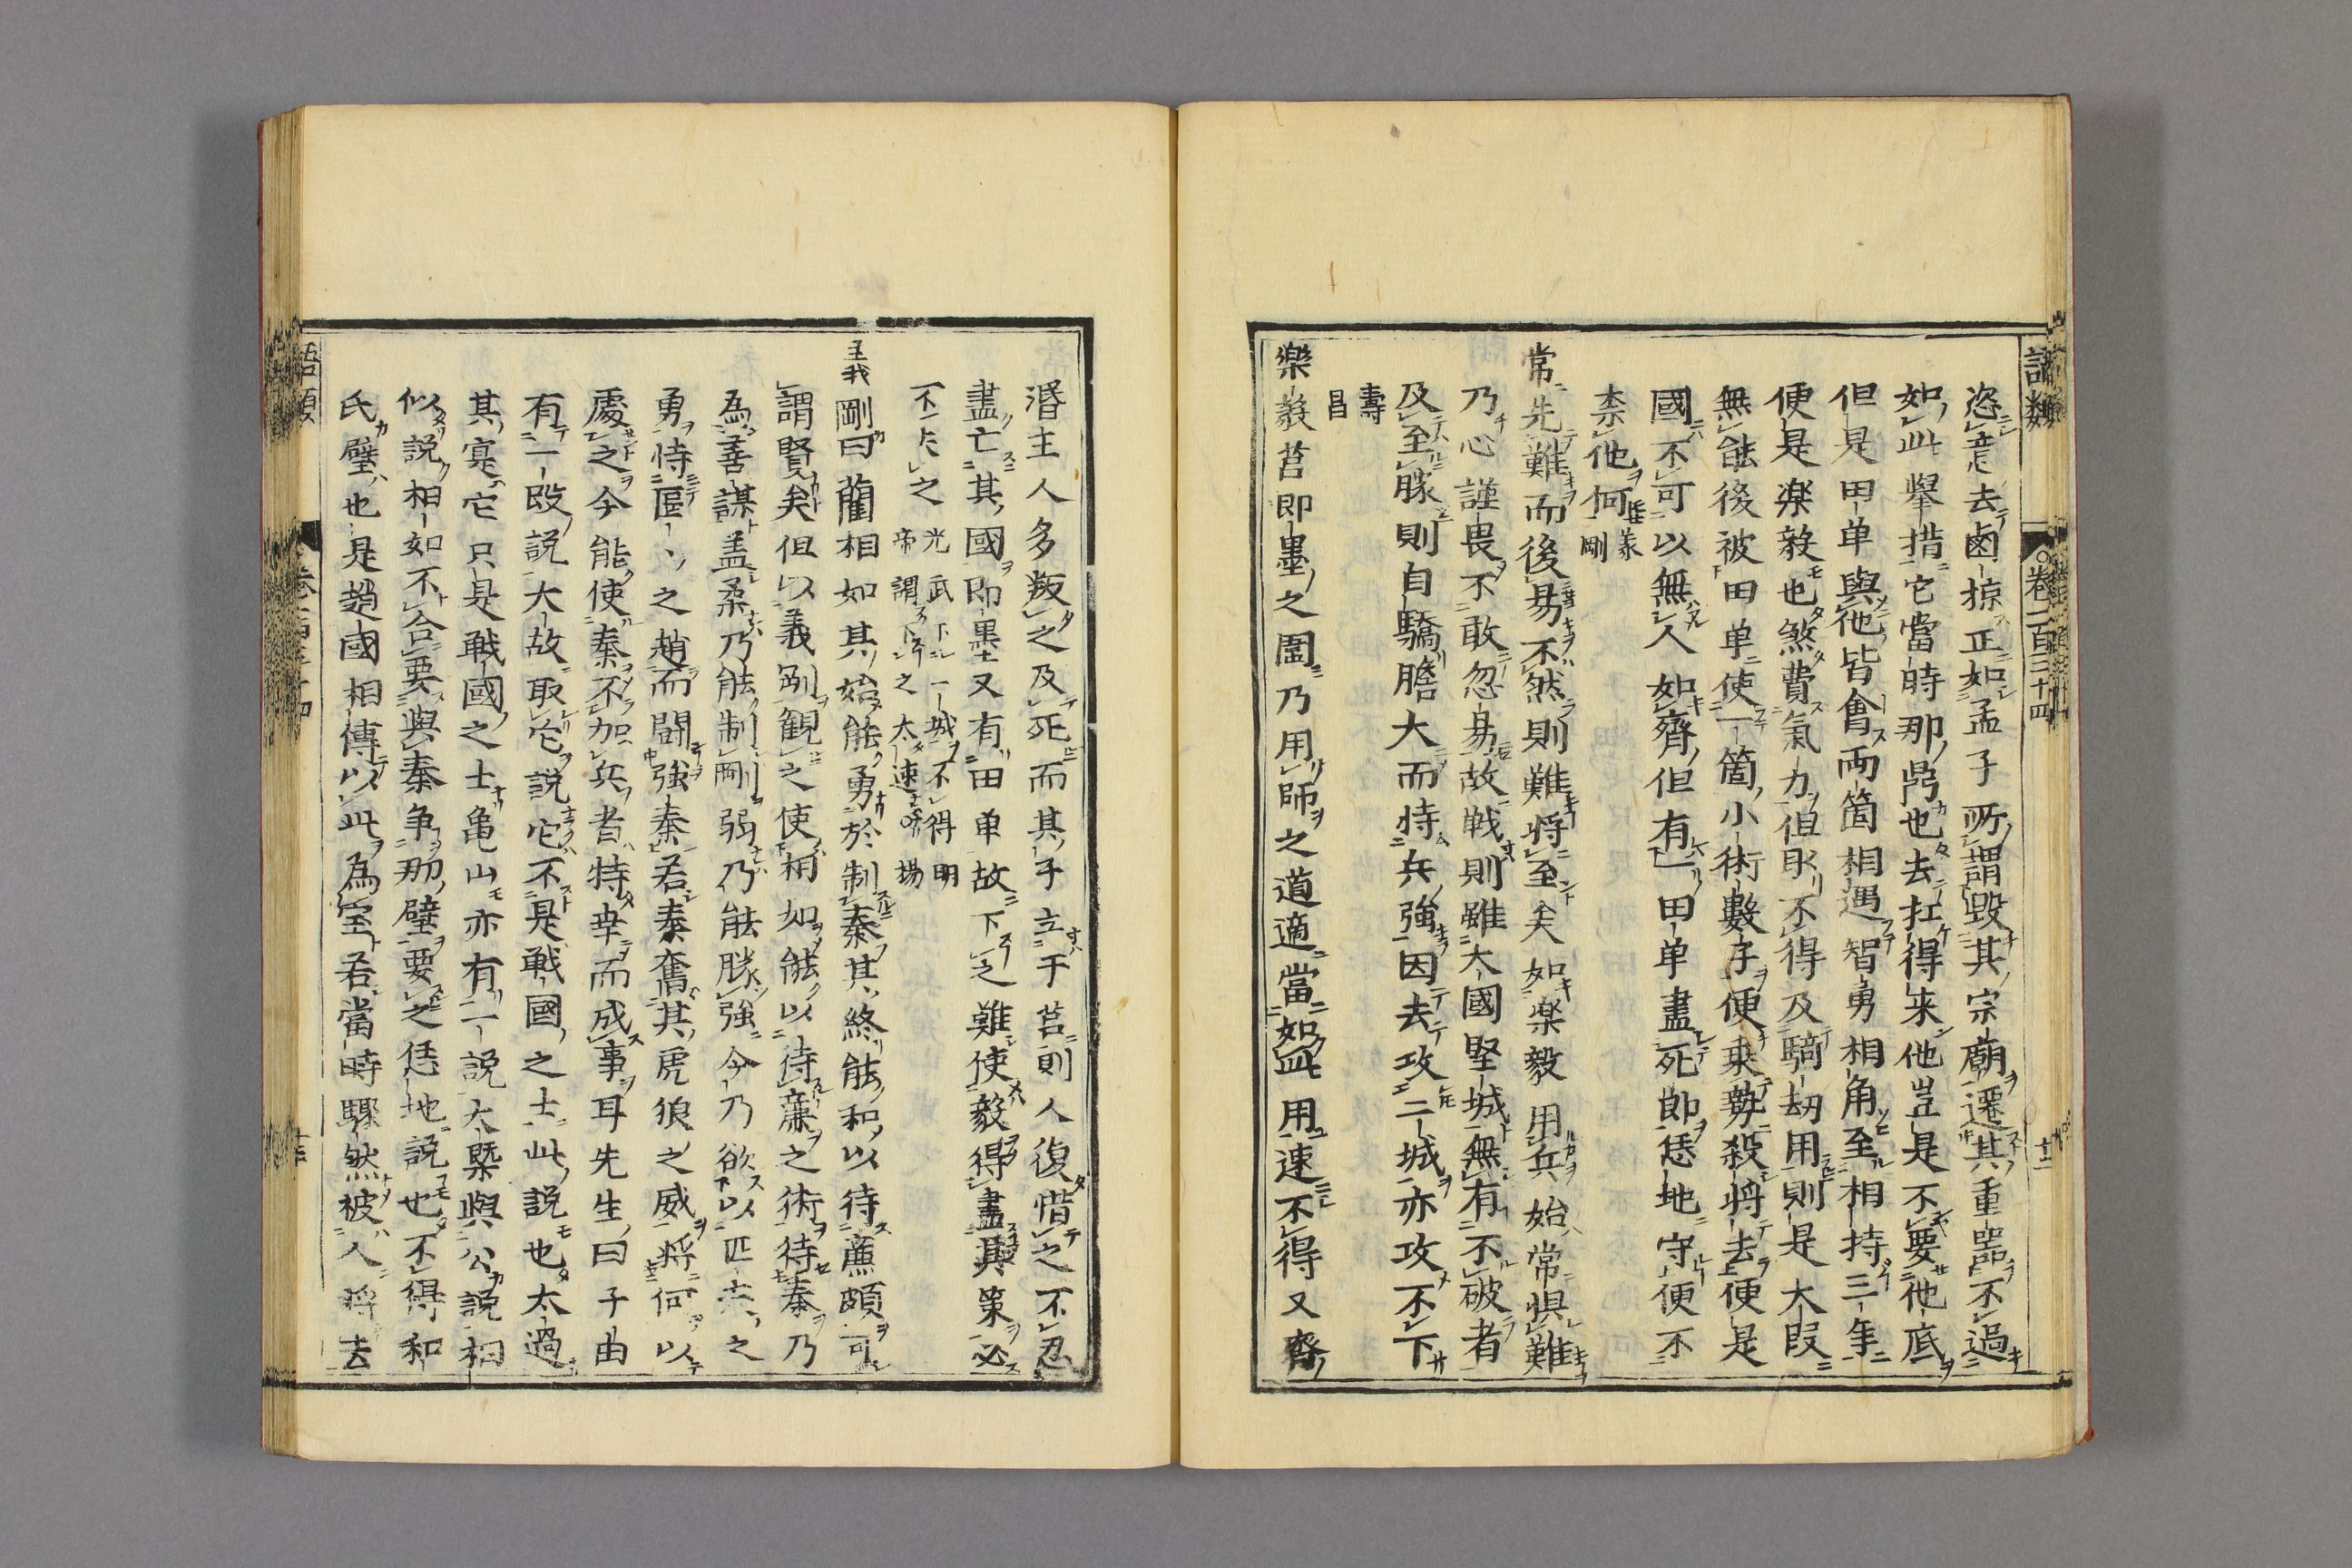 語類
卷一百三十四
十二
恣意去鹵掠正如孟子所謂毀其宗廟遷其重器不過
如此舉措它當時那鼎也去扛得来他豈是不要他底
但是田单與他皆會両箇相遇智勇相角至相持三年
便是楽毅也煞費氣力但取不得及騎劫用則是大叚
無能後被田单使一箇小術數子便乗勢殺将去便是
國不可以無人如齊但有一田单盡死節恁地守便不
柰他何
義剛
常先難而後易不然則難将至矣如楽毅用兵始常惧難
乃心謹畏不敢忽易故戦則雖大國堅城無有不破者
及至勝則自驕膽大而恃兵強因去攻二城亦攻不下
壽昌
楽毅莒即墨之圍乃用師之道適當如此用速不得又齊
湣主人多叛之及死而其子立于莒則人復惜之不忍
盡亡其國即墨又有田单故下之難使毅得盡其策必
不失之
光武下一城不得明
帝謂下之太速 揚
王我剛曰藺相如其始能勇於制秦其終能和以待廉頗可
謂賢矣但以義剛観之使相如能以待廉之術待秦乃
為善謀盖柔乃能制剛弱乃能勝強今乃欲以匹夫之
勇恃區〻之趙而闘強秦若秦奮其虎狼之威将何以
處之今能使秦不加兵者特幸而成事耳先生曰子由
有一叚説大故取它説它不是戦國之士此説也太過
其寔它只是戦國之士亀山亦有一説大槩與公説相
似説相如不合要與秦争那璧要之恁地説也不得和
氏璧也是趙國相傳以此為宝若當時驟然被人将去
語類